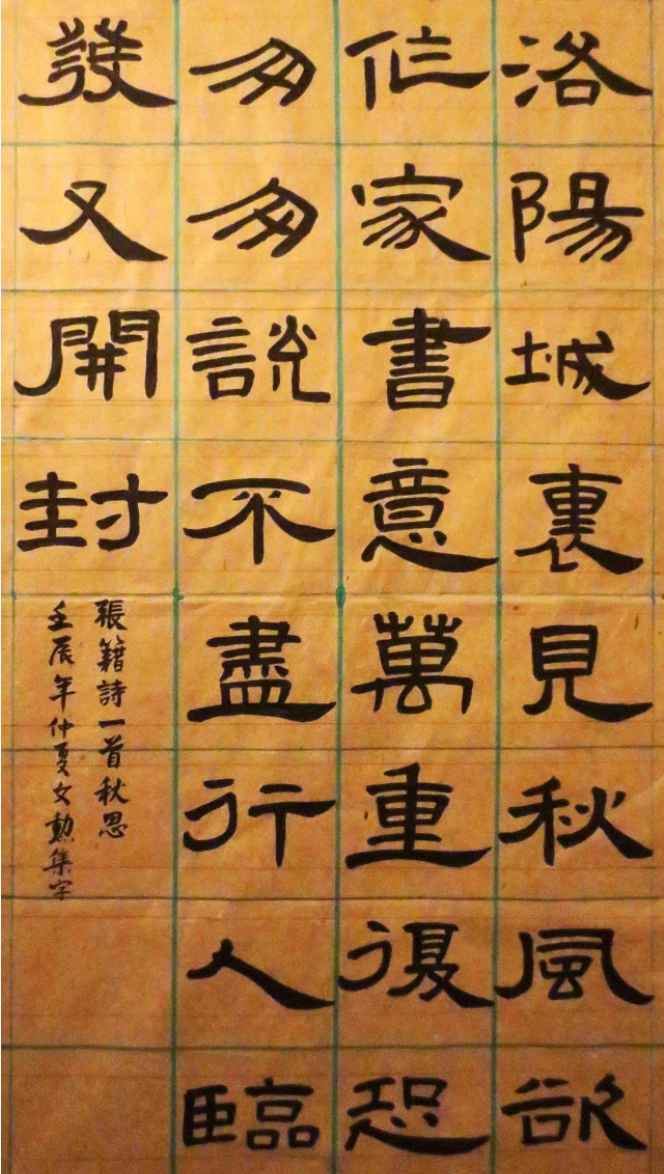 洛陽城裏見秋風欲
作家書意萬重復恐
匆匆說不盡行人臨
發又開封
張籍詩一首秋思
壬辰年仲夏文勳集字